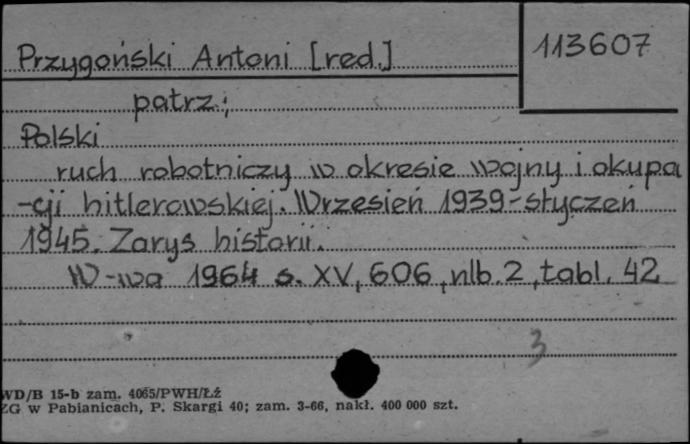 Przygoński Antoni [red.]
113607
patrz:
Polski
ruch robotniczy w okresie wojny i okupa
-cji hitlerowskiej. Wrzesień 1939-styczeń
1945. Zarys historii.
W-wa 1964 s. XV, 606, nlb. 2, tabl. 42
3
WD/B 15-b zam. 4065/PWH/Łź
ZG w Pabianicach, P. Skargi 40; zam. 3-66, nakł. 400 000 szt.